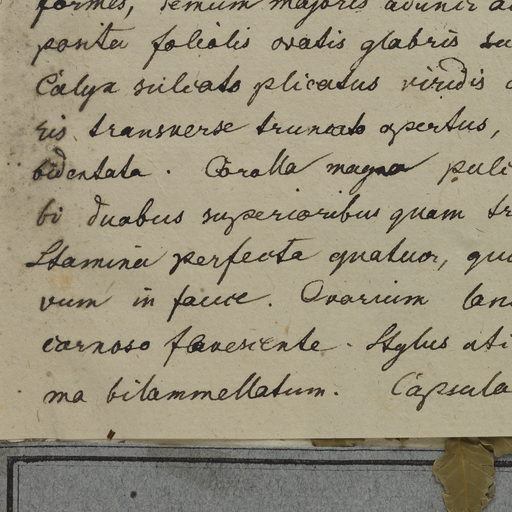 formes, demum majoris
ponita foliolis ovatis glabris
Calyx sulcato plicatus viridis
ris transverse truncato apertus,
bidentata. Corolla magna pulc
bi duabus superioribus quam tr
Stamina perfecta quatuor, qui
vum in fauce. Ovarium lan
carnoso flavescente. Stylus
ma bilammellatum. Capsula